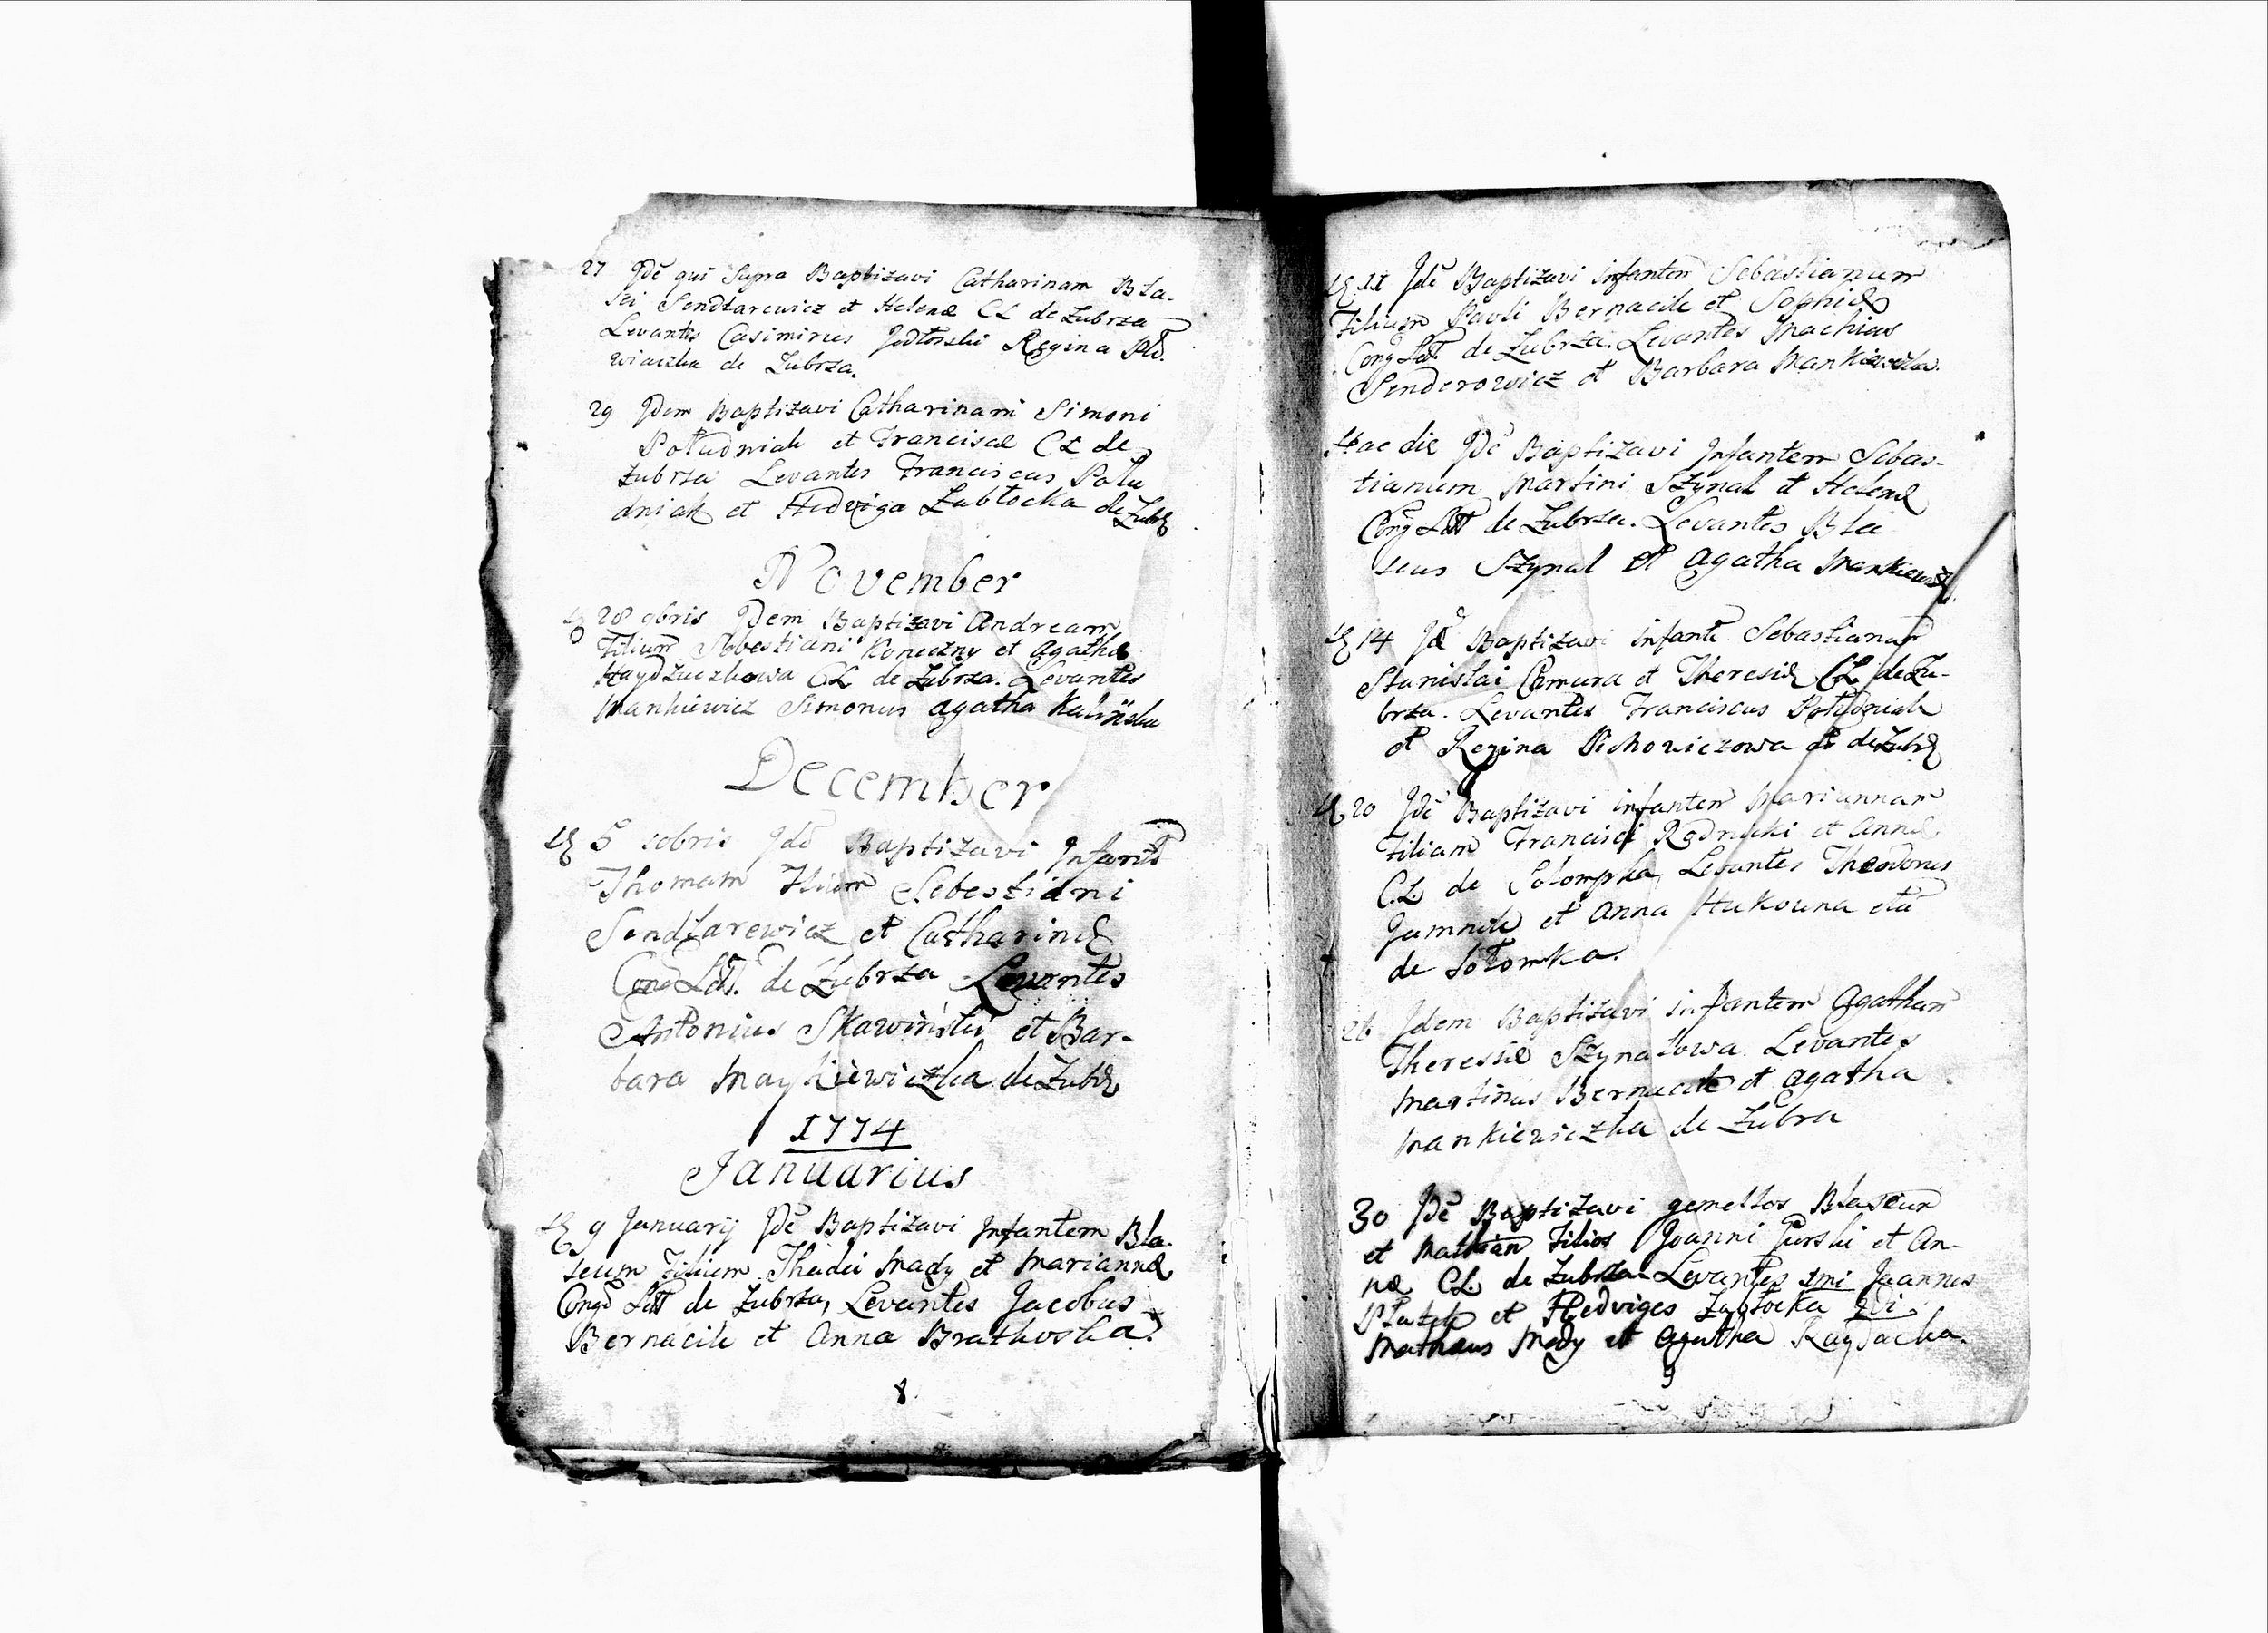 27 Jdē qui Supra Baptizavi Catharinam Bla-
sei Sendzarewicz et Helenæ CL de Zubrza
Levantes Casimirus Jodłoski Regina
wiaczka de Zubrza.
29 Jdem Baptizavi Catharinam Simoni
Poludniak et Franciscæ CL de
Zubrza Levantes Franciscus Polu
dniak et Hedviga Zabłocka de Zubrz
November
28 9bris Jdem Baptizavi Andream
Filium Sebestiani Konieczny et Agathæ
CL de Zubrza. Levantes
Mankiewicz Simonus Agatha
December
5 Jdē Baptizavi Jnfantē
Thomam Filium Sebestiani
Sendzarewicz et Catharinæ
Cong Latt. de Zubrza Levantes
Antonius Skawiński et Bar-
bara Maykiewiczka de Zubrz
1774
Januarius
9 Januarij Jdē Baptizavi Jnfantem Bla-
seum Filium Thadei Mady et Mariannæ
Cong Latt de Zubrza, Levantes Jacobus
Bernacik et Anna Bratkoska.
8.
11 Jdē Baptizavi infantem Sebastianum
Filium Pauli Bernacik et Sophiæ
Cong Latt. de Zubrza. Levantes Mathias
Senderowicz et Barbara
Hac die Jdē Baptizavi Jnfantem Sebas-
tianum Martini Szynal et Helenæ
Cong Latt de Zubrza. Levantes Bla
seus Szynal et Agatha
14 Jdē Baptizavi infantē Sebastianum
Stanislai Camura et Theresiæ CL de Zu-
brza. Levantes Franciscus Poludniak
et Regina Pichowiczowa de Zubrz
20 Jdē Baptizavi infantem Mariannam
Filiam Francisci Rudnicki et Annæ
CL de Levantes Theodorus
et Anna Hukowna
de Sołomka.
26 Jdem Baptizavi infantem Agatham
Theresiæ Szynalowa. Levantes
Martinus Bernacik et Agatha
Mankiewiczka de Zubra
30 Jdē Baptizavi gemellos Blaseum
et Mathian Filios Joanni Gurski et An-
næ CL de Zubrza Levantes 1mi Joannes
Ptaszek et Hedviges Zabłocka 2di
Mathæus Mady et Agatha
9